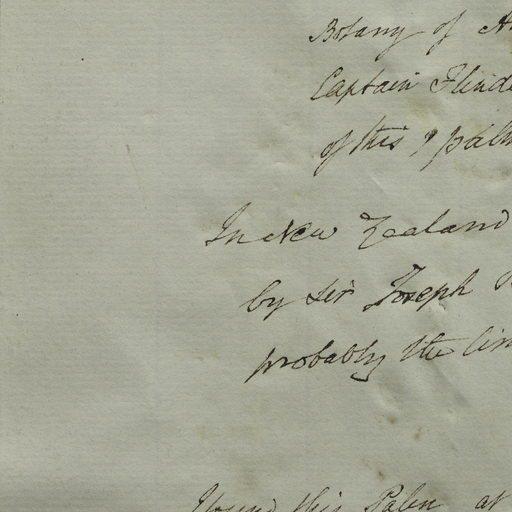 Botany of
Captain Flinde
of this palm
In New Zealand
by Sir Joseph
probably the lim
Found this Palm at